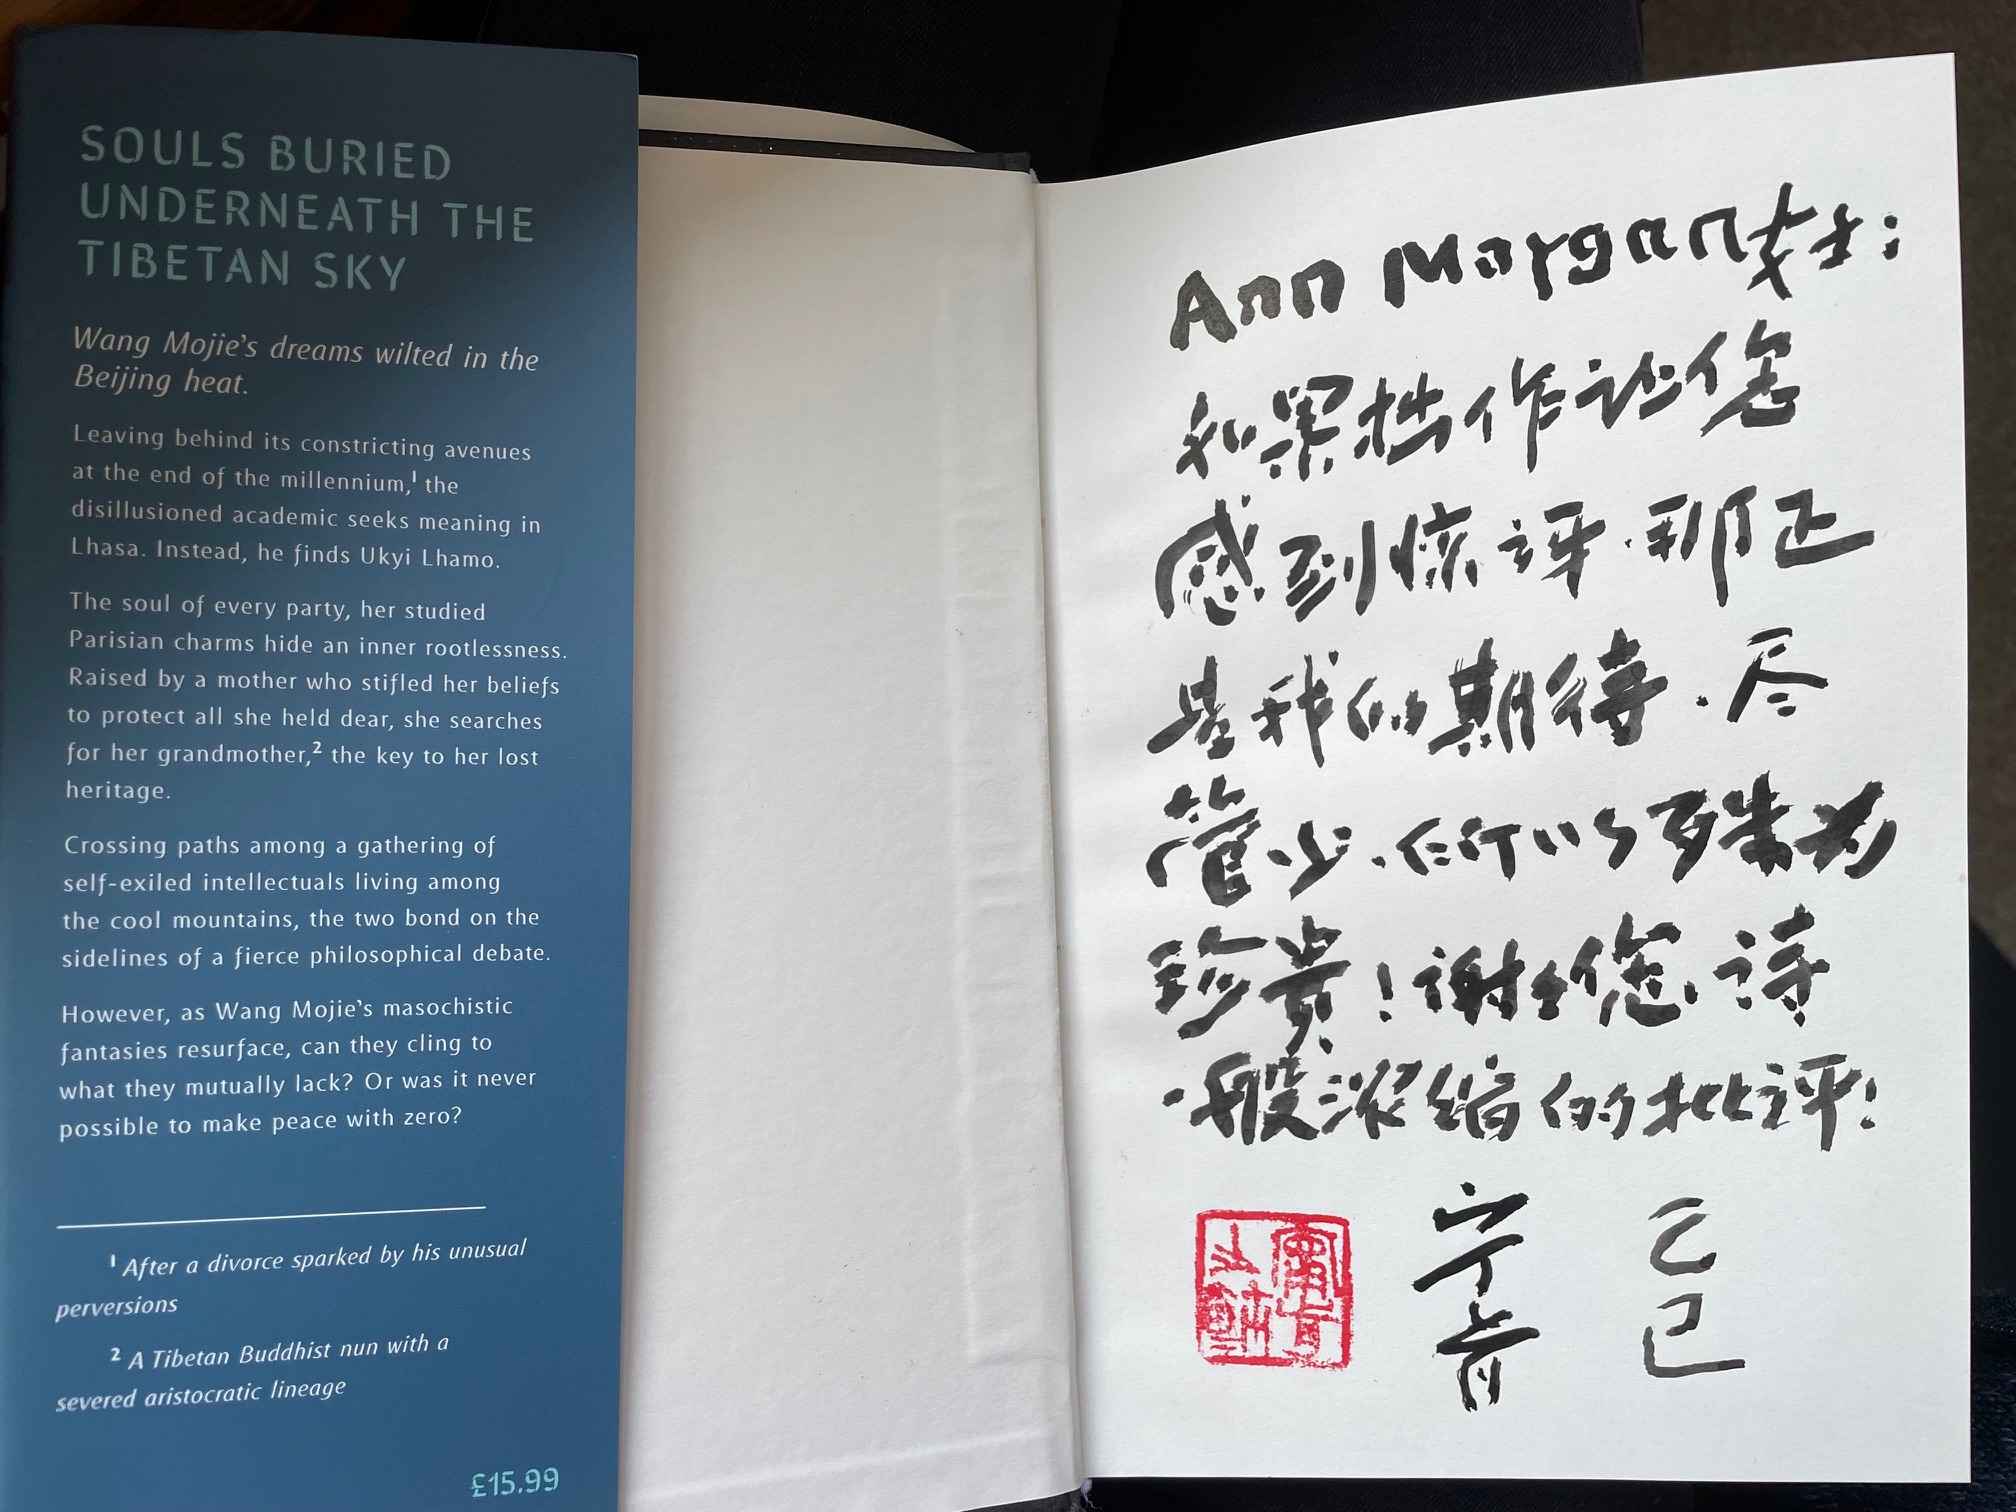 SOULS BURIED
UNDERNEATH THE
TIBETAN SKY
Wang Mojie's dreams wilted in the
Beijing heat.
Leaving behind its constricting avenues
at the end of the millennium,¹ the
disillusioned academic seeks meaning in
Lhasa. Instead, he finds Ukyi Lhamo.
The soul of every party, her studied
Parisian charms hide an inner rootlessness.
Raised by a mother who stifled her beliefs
to protect all she held dear, she searches
for her grandmother,² the key to her lost
heritage.
Crossing paths among a gathering of
self-exiled intellectuals living among
the cool mountains, the two bond on the
sidelines of a fierce philosophical debate.
However, as Wang Mojie's masochistic
fantasies resurface, can they cling to
what they mutually lack? Or was it never
possible to make peace with zero?
¹ After a divorce sparked by his unusual
perversions
² A Tibetan Buddhist nun with a
severed aristocratic lineage
£15.99
Ann Morgan女士:
如果拙作让您
感到惊讶,那正
是我的期待.尽
管少,所以殊为
珍贵!谢谢您,诗
一般浓缩的批评!
宁肯
乙巳